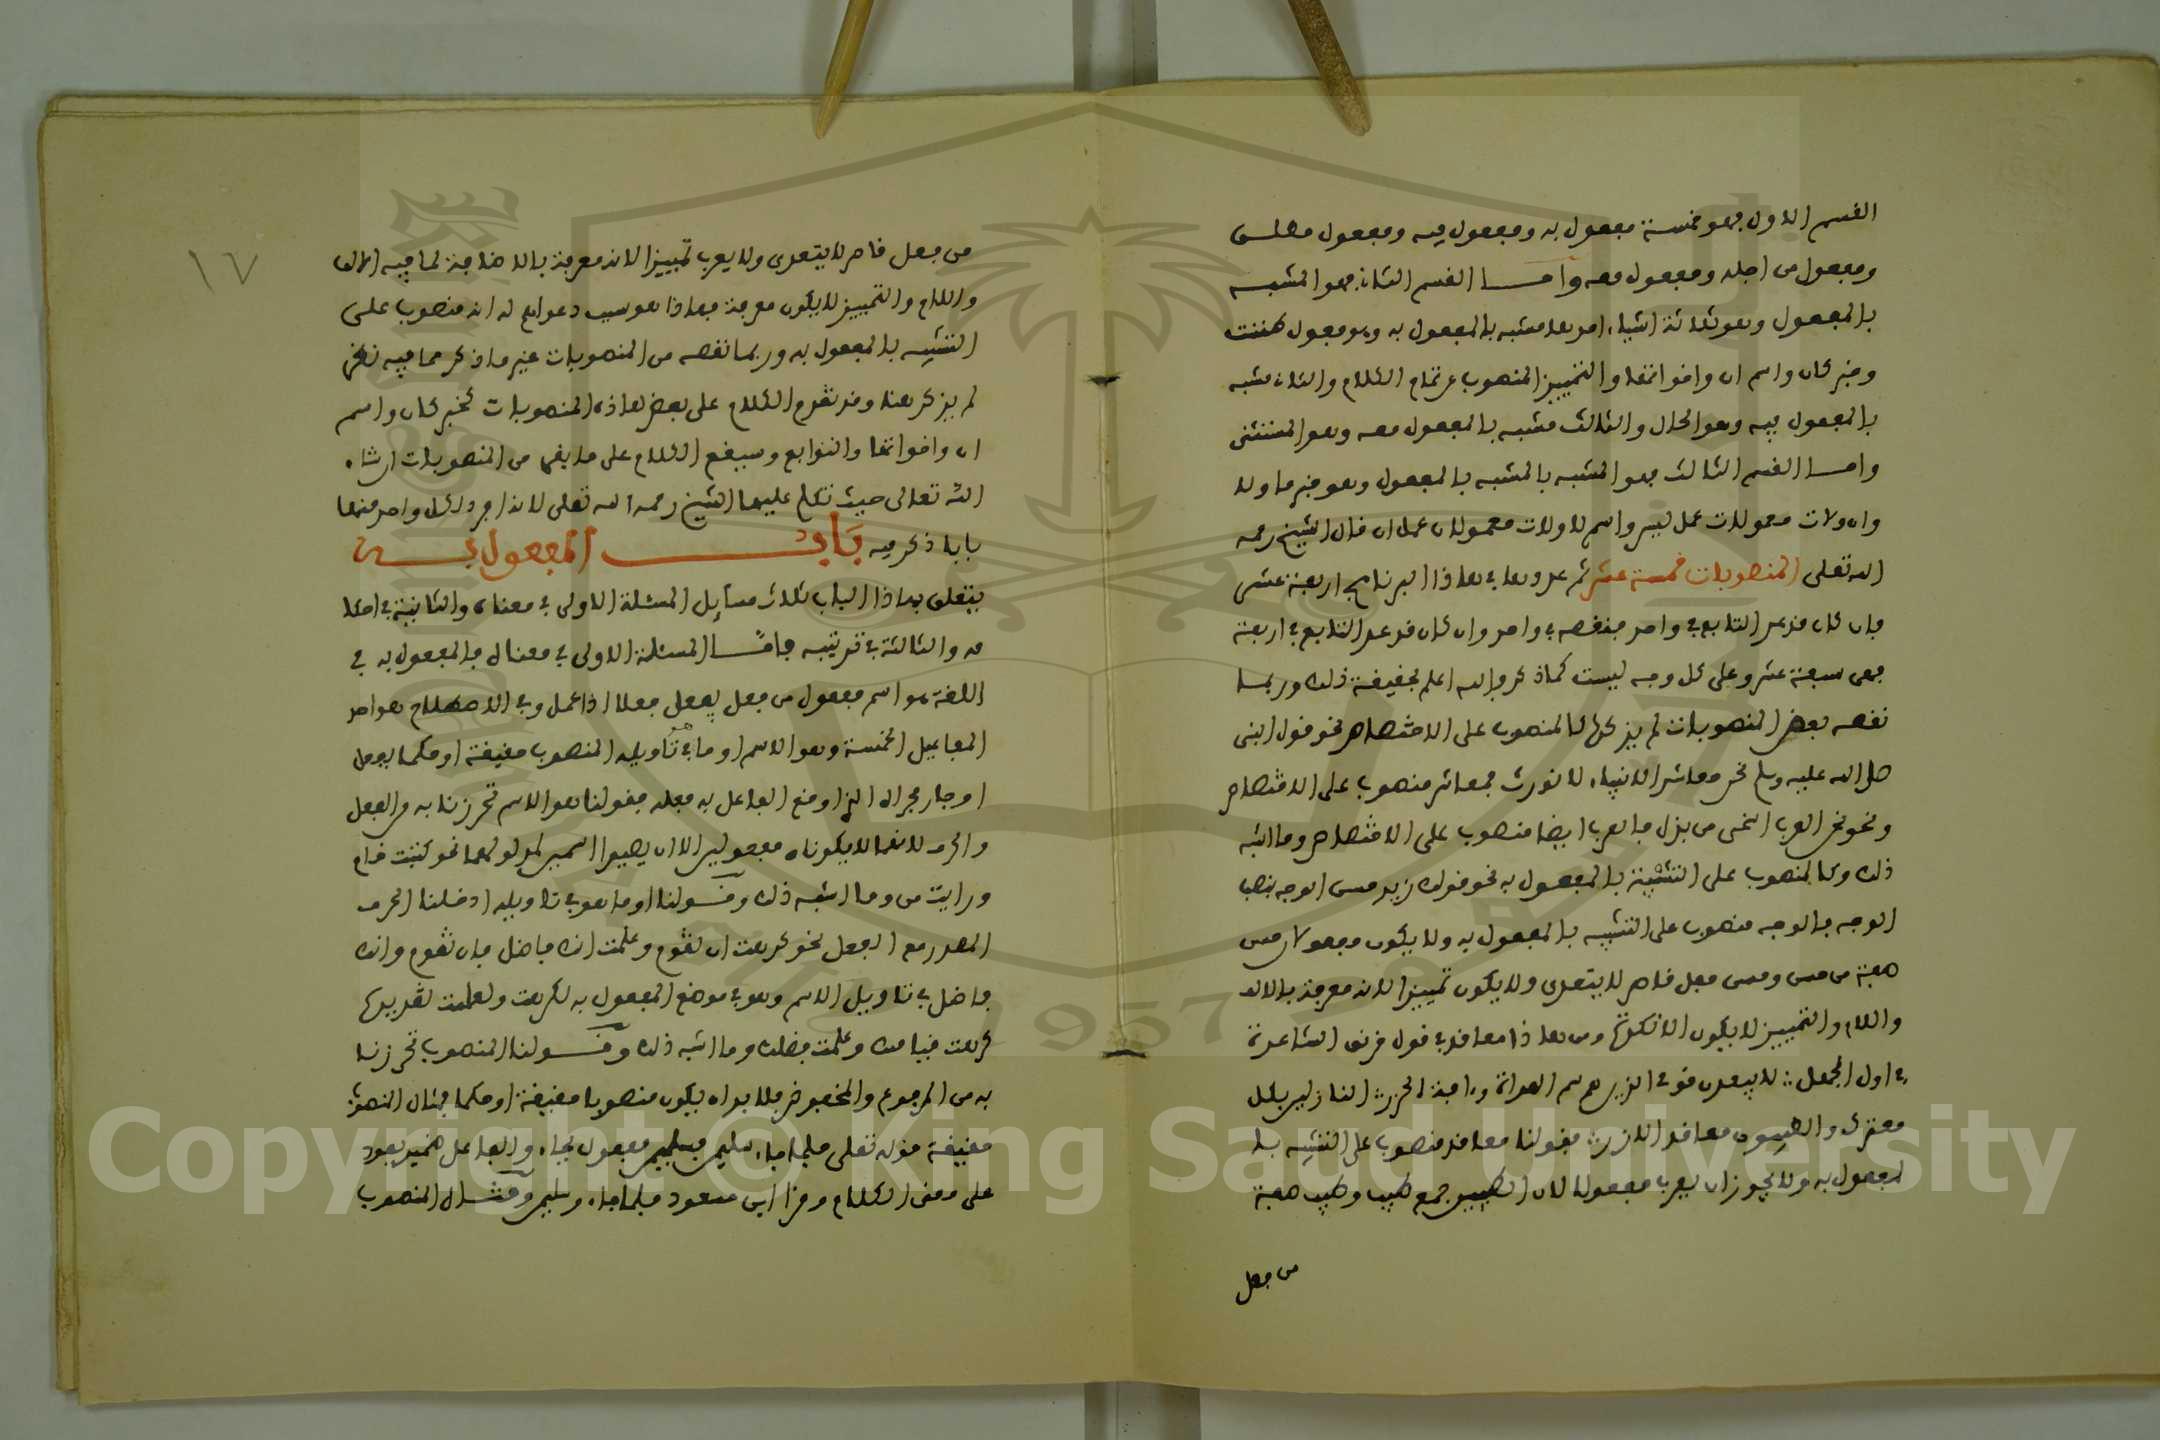 القسم الاول فهو خمسة مفعول به ومفعول فيه ومفعول مطلق
ومفعول من اجله ومفعول معه واما القسم الثاني فهو المشبه
بالمفعول وهو ثلاثة اشياء احدها مشبه بالمفعول به وهو مفعول ظننت
وخبر كان واسم ان واخواتها والتمييز المنصوب عن تمام الكلام والثاني مشبه
بالمفعول فيه وهو الحال والثالث مشبه بالمفعول معه وهو المستثنى
واما القسم الثالث فهو المشبه بالمشبه بالمفعول وهو خبر ما ولا
وان ولات معمولات عمل ليس واسم لا ولات معمولان عمل ان قال الشيخ رحمه
الله تعلى المنصوبات خمسة عشر ثم عدوها في هاذا البرنامج اربعة عشر
فان كان قد عد التابع في واحد فنقصه في واحد وان كان قد عد التابع في اربعة
فهي سبعة عشر وعلى كل وجه ليست كما ذكر والله اعلم بحقيقة ذلك وربما
نقصه بعض المنصوبات لم يذكرها كالمنصوب على الاختصاص نحو قول النبي
صلى الله عليه وسلم نحن معاشر الانبياء لا نورث فمعاشر منصوب على الاختصاص
ونحو نحن العرب اسخى من بذل فالعرب ايضا منصوب على الاختصاص وما اشبه
ذلك وكالمنصوب على التشبيه بالمفعول به نحو قولك زيد حسن الوجه بنصب
الوجه فالوجه منصوب على التشبيه بالمفعول به ولا يكون مفعولا لان حسن
صفة من حسن وحسن فعل قاصر لا يتعدى ولا يكون تمييزا لانه معرفة بالالف
واللام والتمييز لا يكون الا نكرة ومن هاذا معاقد في قول خرنق الشاعرة
في اول الجمل لا يبعدن قومي الذين هم سم العداة وءافة الجزر النازلين بكل
معترك والطيبون معاقد الازر فقولنا معاقد منصوب على التشبيه با
لمفعول به ولا يجوز ان يعرب مفعولا لان الطيبين جمع طيب وطيب صفة
من فعل
١٧
من فعل قاصر لا يتعدى ولا يعرب تمييزا لانه معرفة بالاضافة لما فيه الالف
واللام والتمييز لا يكون معرفة فهاذا هو سبب دعواهم له انه منصوب على
التشبيه بالمفعول به وربما نقصه من المنصوبات غير ما ذكر مما فيه
لم يذكر هنا وقد تقدم الكلام على بعض هاذه المنصوبات كخبر كان واسم
ان واخواتها والتوابع وسيقع الكلام على ما بقي من المنصوبات ان شاء
الله تعالى حيث تكلم عليها الشيخ رحمه الله تعلى لانه افرد لكل واحد منها
بابا ذكر فيه باب المفعول به
يتعلق بهاذا الباب ثلاث مسائل المسئلة الاولى في معناه والثانية في احكا
مه والثالثة في ترتيبه فاما المسئلة الاولى في معناه فالمفعول به في
اللغة هو اسم مفعول من فعل يفعل فعلا اذا عمل وفي الاصطلاح هو احد
المفاعيل الخمسة وهو الاسم او ما هو في تاويله المنصوب حقيقة او حكما بفعل
او جار مجراه الذي اوقع الفاعل به فعله فقولنا هو الاسم تحرزنا به من الفعل
والحرف لانهما لا يكونان مفعولين الا ان يصيرا اسمين لمدلولهما نحو كتبت قام
ورايت من وما اشبه ذلك وقولنا او ما هو في تاويله ادخلنا الحرف
المصدر مع الفعل نحو كرهت ان تقوم وعلمت انك فاضل فان تقوم وانك
فاضل في تاويل الاسم وهو في موضع المفعول به لكرهت ولعلمت تقديره
كرهت قيامك وعلمت فضلك وما اشبه ذلك وقولنا المنصوب تحرزنا
به من المرفوع والمخفوض فلا بد ان يكون منصوبا حقيقة او حكما فمثال المنصوب
حقيقة قوله تعلى فلما جاء سليمن فسليمن مفعول بجاء والفاعل ضمير يعود
على معنى الكلام وقرا ابن مسعود فلما جاءوا سليمن ومثال المنصوب